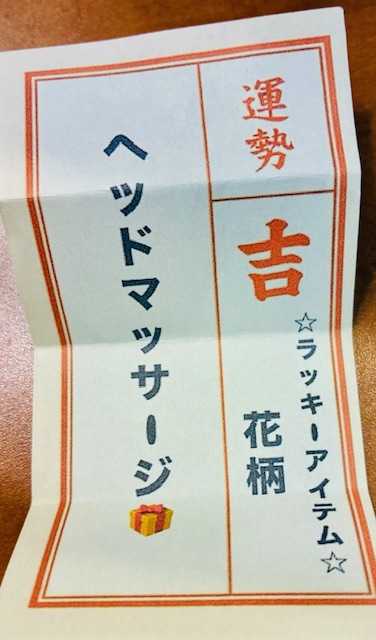 運勢
吉
☆ラッキーアイテム☆
花柄
ヘッドマッサージ